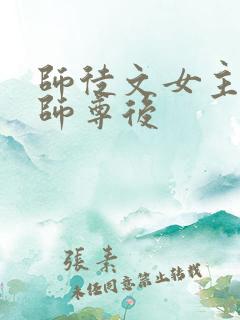 師徒文女主
師尊後
張素
未經同意禁止轉載